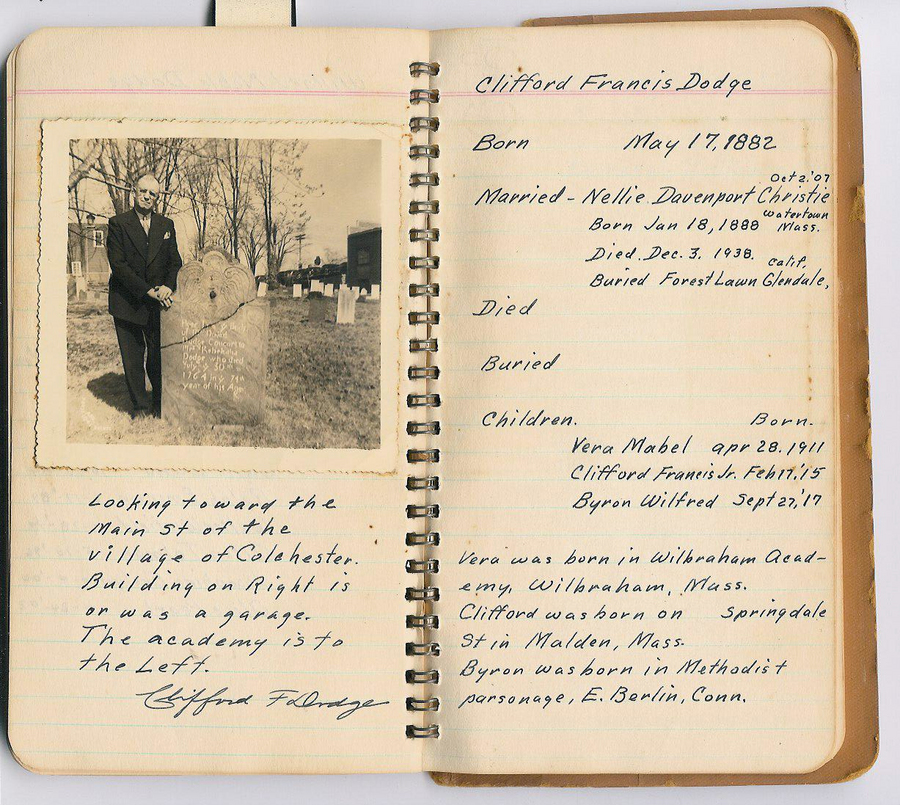 Looking toward the
Main St of the
village of Colchester.
Building on Right is
or was a garage.
The academy is to
the Left.
Clifford F Dodge
Clifford Francis Dodge
Born May 17, 1882
Oct 2.'07
Married - Nellie Davenport Christie
Born Jan 18, 1888 Watertown Mass.
Died. Dec. 3, 1938.
Buried Forest Lawn Glendale, Calif.
Died
Buried
Children. Born.
Vera Mabel apr 28. 1911
Clifford Francis Jr. Feb 17,'15
Byron Wilfred Sept 27,'17
Vera was born in Wilbraham Acad-
emy, Wilbraham, Mass.
Clifford was born on Springdale
St in Malden, Mass.
Byron was born in Methodist
parsonage, E. Berlin, Conn.
Dodge who Died
1764
year of his Age